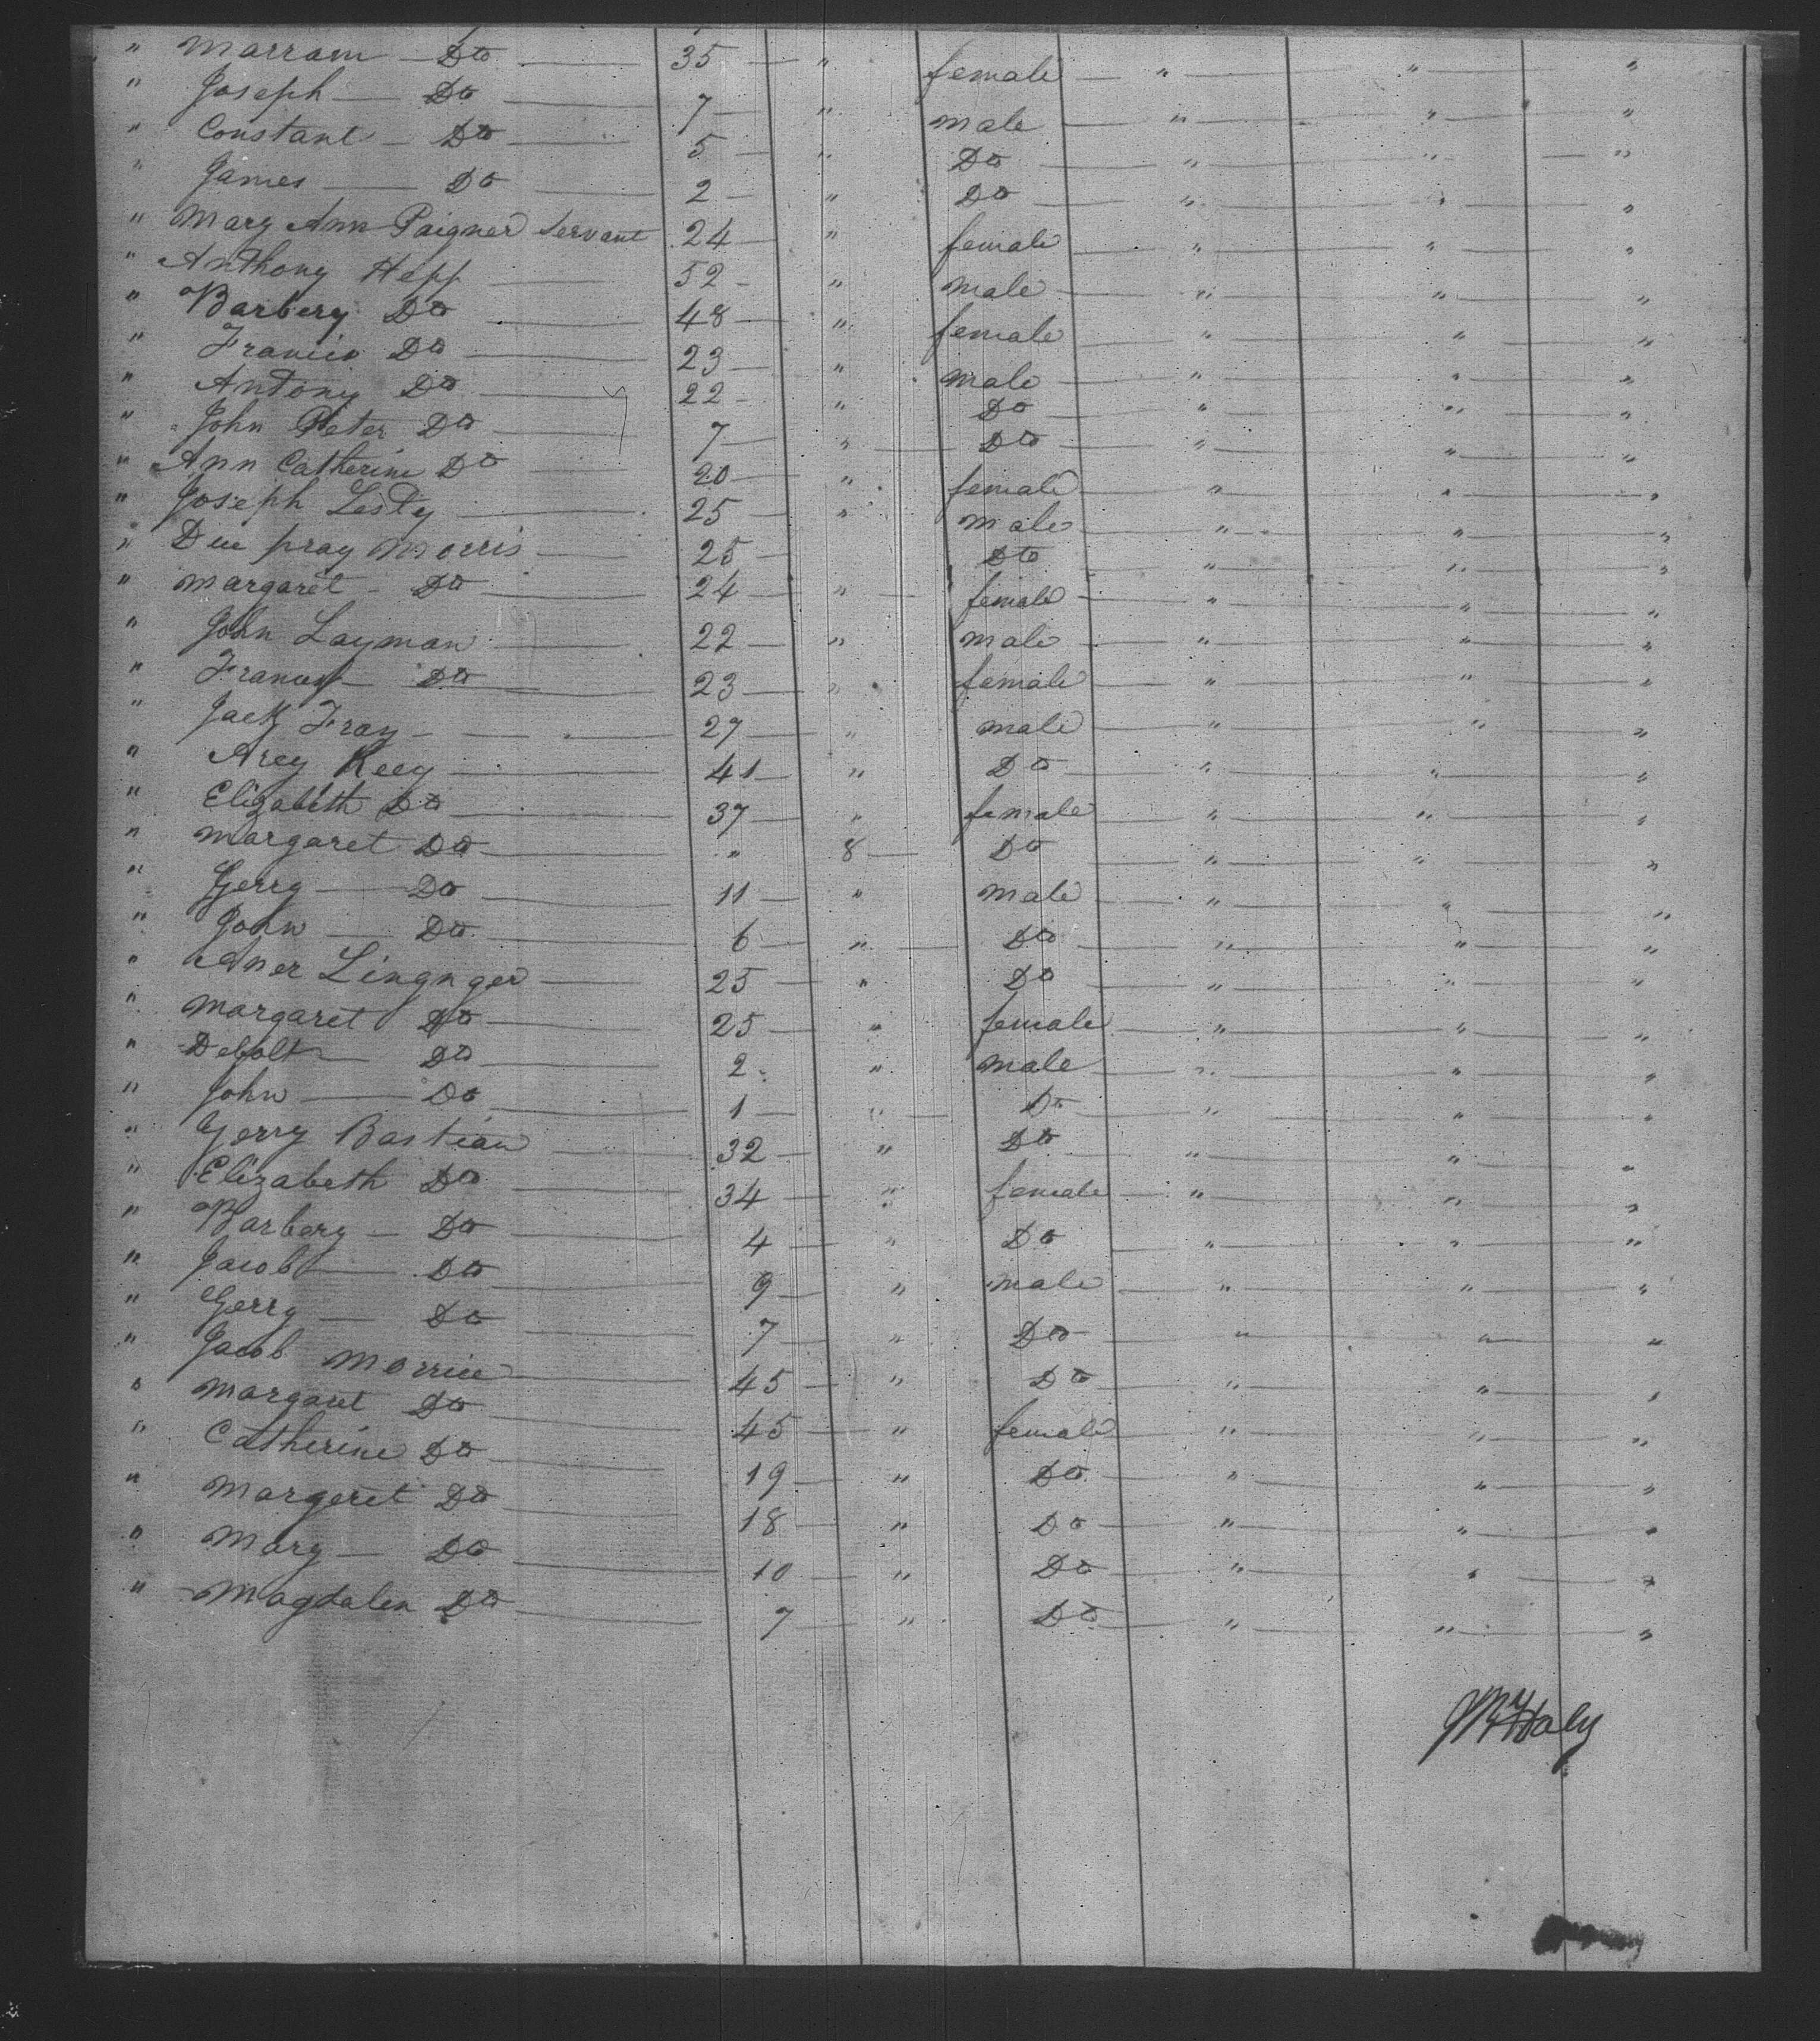 " Marram — Do — 35 — " female — " — " — "
" Joseph — Do — 7 — " male — " — " — "
" Constant — Do — 5 — " Do — " — " — "
" James — Do — 2 — " Do — " — " — "
" Mary Ann Paigner Servant 24 — " female — " — " — "
" Anthony Hepp — 52 — " male — " — " — "
" Barbery Do — 48 — " female — " — " — "
" Francis Do — 23 — " male — " — " — "
" Antony Do — 22 — " Do — " — " — "
" John Peter Do — 7 — " Do — " — " — "
" Ann Catherine Do — 20 — " female — " — " — "
" Joseph Lesty — 25 — " male — " — " — "
" Due pray Morris — 25 — Do — " — " — "
" Margaret — Do — 24 — " female — " — " — "
" John Layman — 22 — " male — " — " — "
" Do — 23 — " female — " — " — "
" Fray — 27 — " male — " — " — "
" Arey Keey — 41 — " Do — " — " — "
" Elizabeth Do — 37 — " female — " — " — "
" Margaret Do — " 8 — Do — " — " — "
" Gerry — Do — 11 — " male — " — " — "
" John — Do — 6 — " Do — " — " — "
" Lingnger — 25 — " Do — " — " — "
" Margaret Do — 25 — " female — " — " — "
" Do — 2 — " male — " — " — "
" John — Do — 1 — " Do — " — " — "
" Gerry Bastian — 32 — " Do — " — " — "
" Elizabeth Do — 34 — " female — " — " — "
" Barbery — Do — 4 — " Do — " — " — "
" Jacob — Do — 9 — " male — " — " — "
" Gerry — Do — 7 — " Do — " — " — "
" Jacob Morrice — 45 — " Do — " — " — "
" Margaret Do — 45 — " female — " — " — "
" Catherine Do — 19 — " Do — " — " — "
" Margeret Do — 18 — " Do — " — " — "
" Mary — Do — 10 — " Do — " — " — "
" Magdalen Do — 7 — " Do — " — " — "